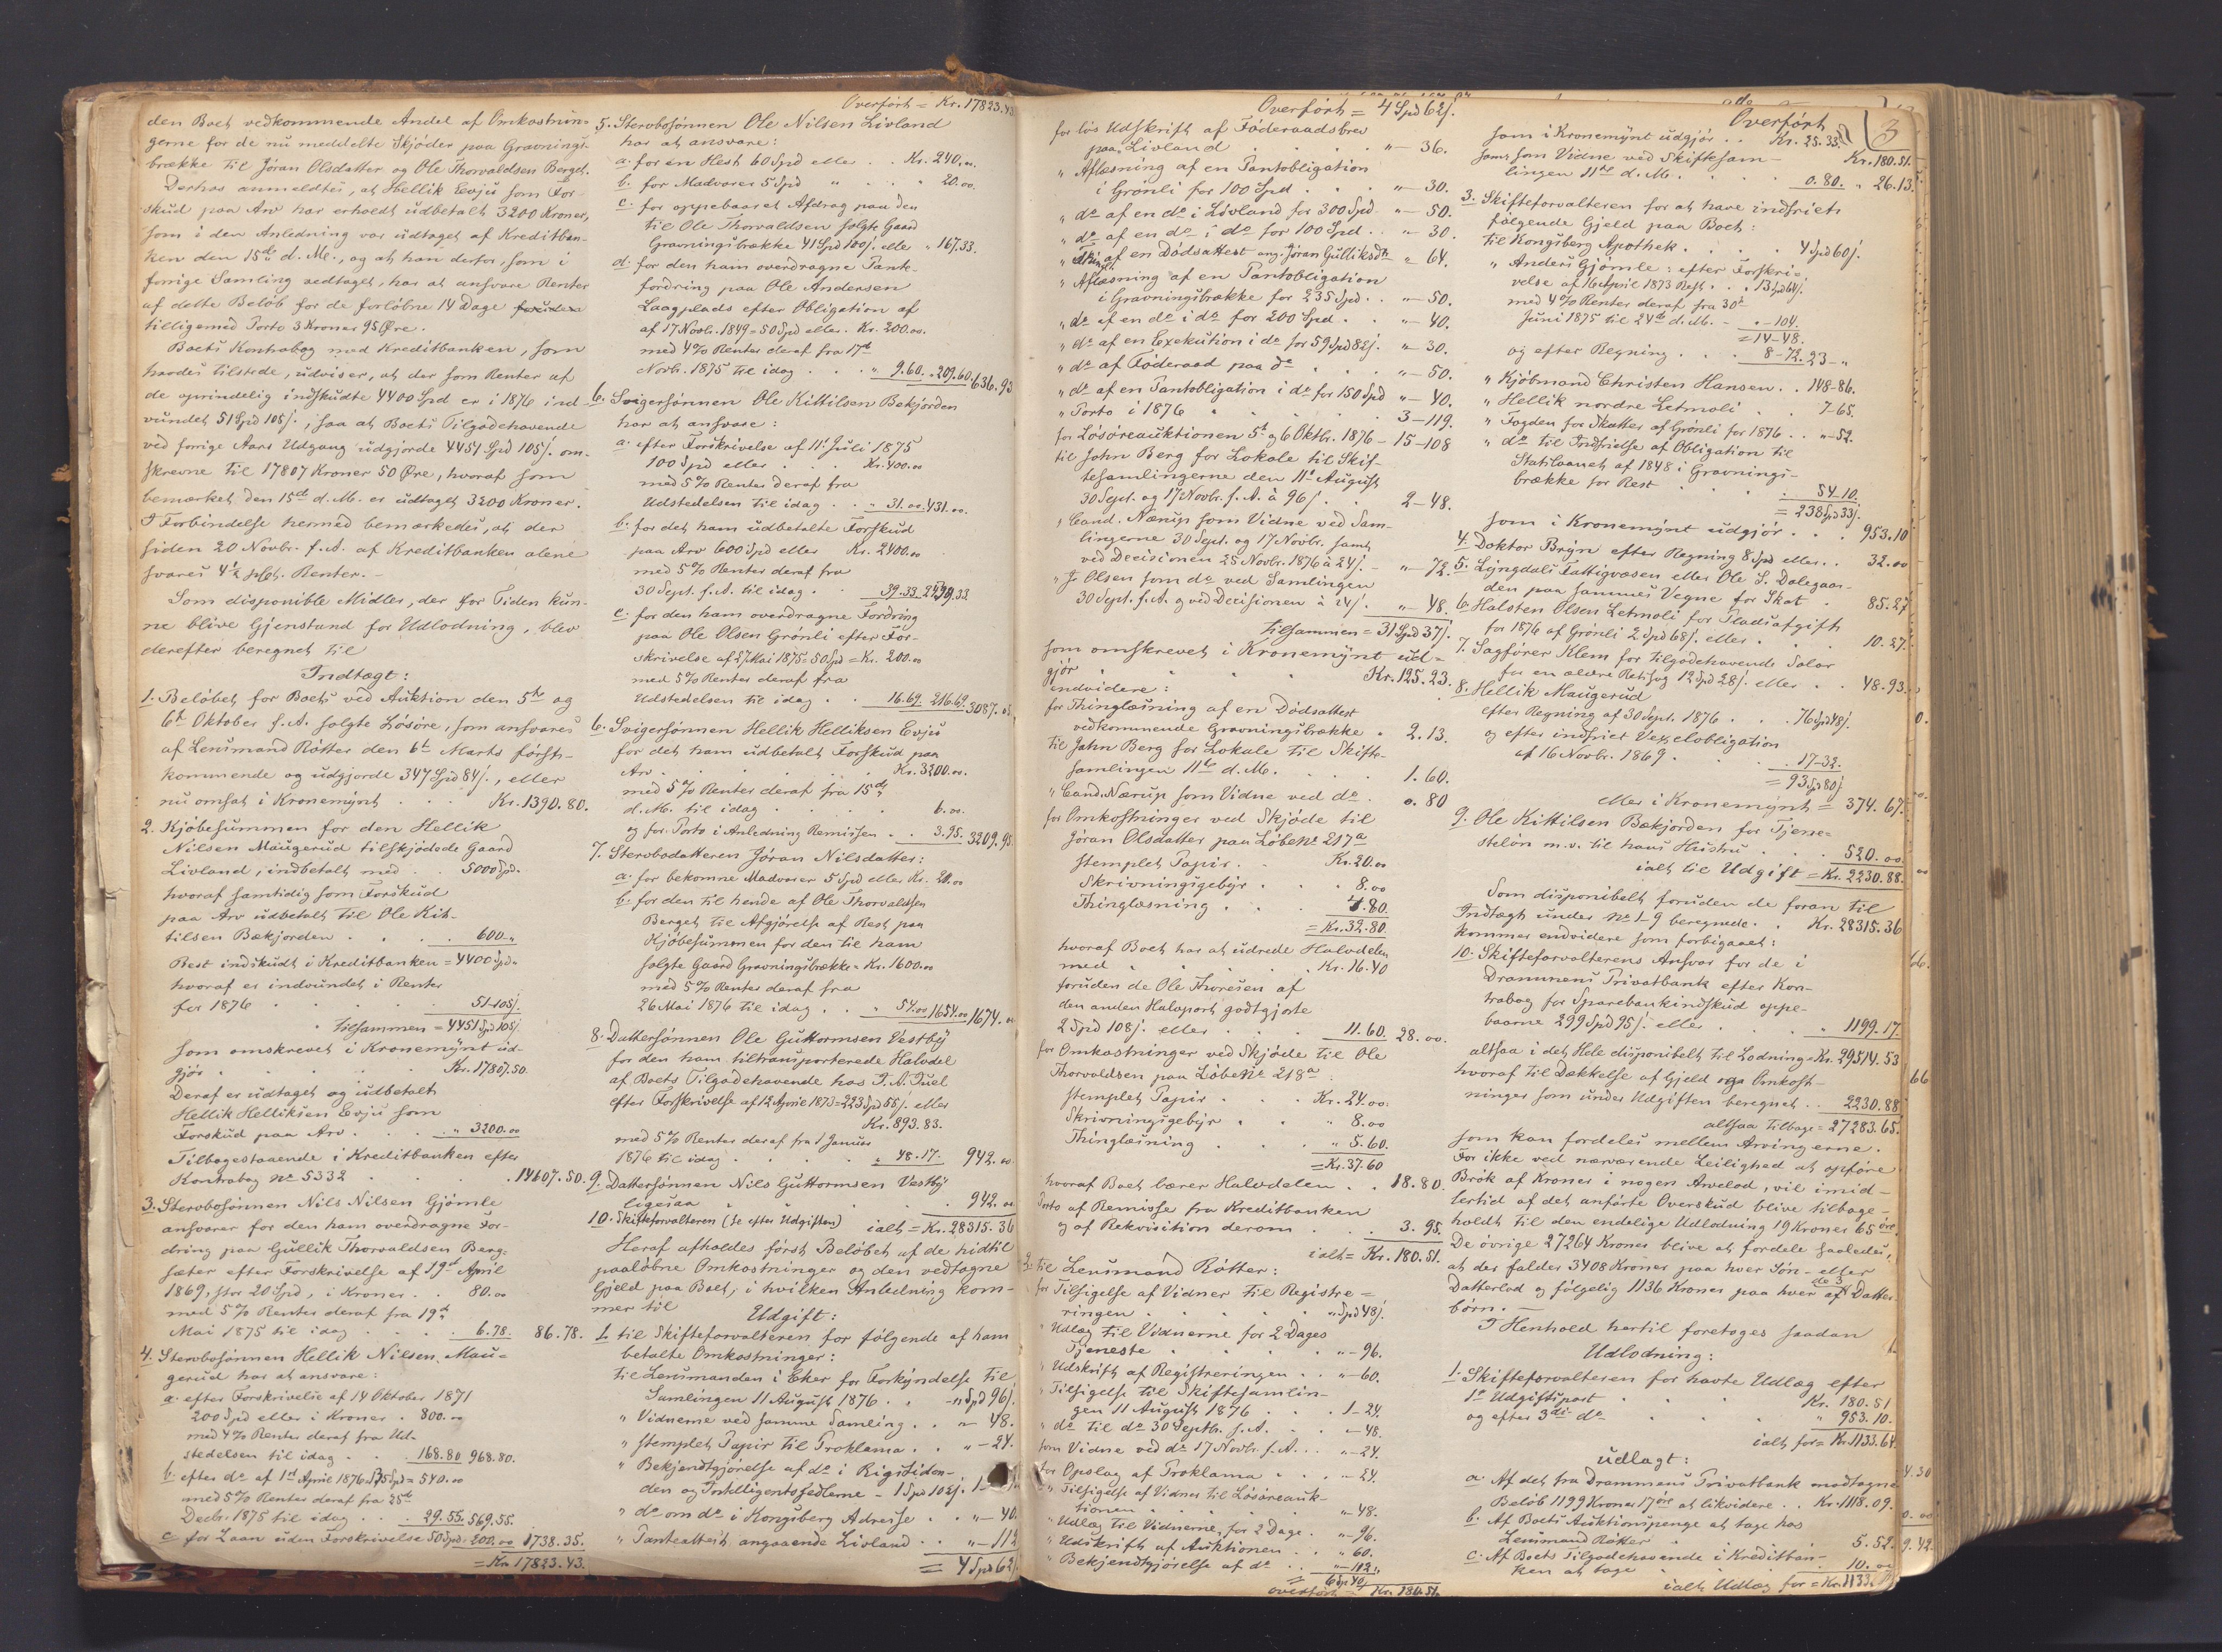 den Boet vedkommende Andel af Omkostnin-
gerne for de nu meddelte Skjøder paa Gravnings-
brække til Jøran Olsdatter og Ole Thorvaldsen Berget.
Derhos anmeldtes, at Hellik Evju som For-
skud paa Arv har erholdt udbetalt 3200 Kroner,
som i den Anledning var udtaget af Kreditban-
ken den 15de d. M., og at han derfor, som i
forrige Samling vedtaget, har at ansvare Renter
af dette Beløb for de forløbne 14 Dage
tilligemed Porto 3 Kroner 95 Øre.
Boets Kontrabog med Kreditbanken, som
havdes tilstede, udviser, at der som Renter af
de oprindelig indskudte 4400 Spd er i 1876 ind-
vundet 51 Spd 105 /., saa at Boets Tilgodehavende
ved forrige Aars Udgang udgjorde 4451 Spd 105 /. om-
skrevne til 17807 Kroner 50 Øre, hvoraf som
bemærket den 15de d. M. er udtaget 3200 Kroner.
I Forbindelse hermed bemærkedes, at der
siden 20 Novbr. f. A. af Kreditbanken alene
svares 4½ pCt. Renter. -
Som disponible Midler, der for Tiden kun-
ne blive Gjenstand for Udlodning, blev
derefter beregnet til
Indtægt:
1. Beløbet for Boets ved Auktion den 5te og
6te Oktober f. A. solgte Løsøre, som ansvares
af Lensmand Røtter den 6te Marts først-
kommende og udgjorde 347 Spd 84 /., eller
nu omsat i Kronemynt . . . Kr. 1390.80.
2. Kjøbesummen for den Hellik
Nilsen Maugerud tilskjødede Gaard
Livland, indbetalt med . . 5000 Spd.
hvoraf samtidig som Forskud
paa Arv udbetalt til Ole Kit-
tilsen Bækjorden . . . 600 - "
Rest indskudt i Kreditbanken = 4400 Spd "
hvoraf er indvundet i Renter
for 1876 . . . 51-105 /.
Tilsammen = 4451 Spd 105 /.
som omskrevet i Kronemynt ud-
gjør . . . Kr. 17807.50.
Deraf er udtaget og udbetalt
Hellik Helliksen Evju som
Forskud paa Arv . . . " 3200.00
Tilbagestaaende i Kreditbanken efter
Kontrabog No 5332 . . . 14607.50.
3. Stervbosønnen Nils Nilsen Gjømle
ansvarer for den ham overdragne For-
dring paa Gullik Thorvaldsen Berg-
sæter efter Forskrivelse af 19de April
1869, stor 20 Spd, i Kroner . . 80.00
med 5% Renter deraf fra 19de
Mai 1875 til idag . . . 6.78. 86.78.
4. Stervbosønnen Hellik Nilsen Mau-
gerud har at ansvare:
a. efter Forskrivelse af 14 Oktober 1871
200 Spd eller i Kroner . 800.00
med 4% Renter deraf fra Ud-
stedelsen til idag . . 168.80 968.80.
b. efter do af 1ste April 1876 135 Spd = 540.00
med 5% Renter deraf fra 25de
Decbr. 1875 til idag . . . 29.55. 569.55.
c. for Laan uden Forskrivelse 50 Spd = 200.00 1738.35.
= Kr. 17823.43.
Overført = Kr. 17823.43
5. Stervbosønnen Ole Nilsen Livland
har at ansvare:
a. for en Hest 60 Spd eller . . Kr. 240.00.
b. for Madvarer 5 Spd " . . . " 20.00.
c. for oppebaaret Afdrag paa den
til Ole Thorvaldsen solgte Gaard
Gravningsbrække 41 Spd 100 /. eller " 167.33.
d. for den ham overdragne Pante-
fordring paa Ole Andersen
Laagplads efter Obligation af
af 17 Novbr. 1849 = 50 Spd eller . Kr. 200.00.
med 4% Renter deraf fra 17de
Novbr. 1875 til idag . . . " 9.60. " 209.60 636.93
6. Svigersønnen Ole Kittilsen Bekjorden
har at ansvare:
a. efter Forskrivelse af 11te Juli 1875
100 Spd eller . . . Kr. 400.00
med 5% Renter deraf fra
Udstedelsen til idag . . " 31.00. 431.00.
b. for det ham udbetalte Forskud
paa Arv 600 Spd eller Kr. 2400.00
med 5% Renter deraf fra
30 Sept. f. A. til idag . . 39.33. 2439.33.
c. for den ham overdragne Fordring
paa Ole Olsen Grønli efter For-
skrivelse af 27 Mai 1875 = 50 Spd = Kr. 200.00
med 5% Renter deraf fra
Udstedelsen til idag . . 16.69. 216.69. 3087.
6. Svigersønnen Hellik Helliksen Evju
for det ham udbetalt Forskud paa
Arv . . . Kr. 3200.00.
med 5% Renter deraf fra 15de
d. M. til idag . . . 6.00.
og for Porto i Anledning Remissen . . 3.95. 3209.95
7. Stervbodatteren Jøran Nilsdatter:
a. for bekomne Madvarer 5 Spd eller Kr. 20.00
b. for den til hende af Ole Thorvaldsen
Berget til Afgjørelse af Rest paa
Kjøbesummen for den til ham
solgte Gaard Gravningsbrække = Kr. 1600.00
med 5% Renter deraf fra
26 Mai 1876 til idag . . " 54.00 1654.00 1674.
8. Dattersønnen Ole Guttormsen Vestby
for den ham tiltransporterede Halvdel
af Boets Tilgodehavende hos T. A. Juel
efter Forskrivelse af 12 April 1873 = 223 Spd 55 /. eller
Kr. 893.83.
med 5% Renter deraf fra 1 Januar
1876 til idag . . . " 48.17. 942.00
9. Dattersønnen Nils Guttormsen Vestby
ligesaa . . . 942.00
10. Skifteforvalteren (se efter Udgiften) ialt = Kr. 28315.36
Heraf afholdes først Beløbet af de hidtil
paaløbne Omkostninger og den vedtagne
Gjeld paa Boet, i hvilken Anledning kom-
mer til
Udgift:
1. til Skifteforvalteren for følgende af ham
betalte Omkostninger:
til Lensmanden i Eker for Forkyndelse til
Samlingen 11 August 1876 . . - " Spd 96 /.
" Vidnerne ved samme Samling . . " - 48.
" stemplet Papir til Proklama . . " - 24.
" Bekjendtgjørelse af do i Rigstiden-
den og Intelligentssedlerne - 1 Spd 102 /.
" do om do i Kongsberg Adresse . . " - 40.
" Panteattest angaaende Livland . . " - 112
= 4 Spd 62 /.
Overført = 4 Spd 62 /.
for løs Udskrift af Føderaadsbrev
paa Livland . . . " - 36.
" Aflæsning af en Pantobligation
i Grønli for 100 Spd . . . " - 30.
" do af en do i Livland for 300 Spd " - 50.
" do af en do i do for 100 Spd . . " - 30.
" af en Dødsattest ang. Jøran Gulliksdtr " 64.
" Aflæsning af en Pantobligation
i Gravningsbrække for 235 Spd . . " - 50.
" do af en do i do for 200 Spd . . " - 40.
" do af en Exekution i do for 59 Spd 82 /. " - 30.
" do af Føderaad paa do . . . " - 50.
" do af en Pantobligation i do for 150 Spd " - 40.
" Porto i 1876 . . . 3 - 119.
for Løsøreauktionen 5te og 6 Oktbr. 1876 - 15 - 108
til John Berg for Lokale til Skif-
tesamlingerne den 11te August
30 Sept. og 17 Novbr. f. A. à 96 /. . . 2 - 48.
" Cand. Nærup som Vidne ved Sam-
lingerne 30 Sept. og 17 Novbr. samt
ved Decisionen 25 Novbr. 1876 à 24 /. - " - 72.
" J. Olsen som do ved Samlingen
30 Sept. f. A. og ved Decisionen à 24 /. " - 48.
tilsammen = 31 Spd 37 /.
som omskrevet i Kronemynt ud-
gjør . . . Kr. 125.23.
endvidere:
for Thinglæsning af en Dødsattest
vedkommende Gravningsbrække . 2.13.
til John Berg for Lokale til Skifte-
samlingen 11te d. M. . . . 1.60.
" Cand. Nærup som Vidne ved do . 0.80
for Omkostninger ved Skjøde til
Jøran Olsdatter paa Løbe No 217a
stemplet Papir . . Kr. 20.00
Skrivningsgebyr . . . 8.00
Thinglæsning . . . 4.80.
= Kr. 32.80.
hvoraf Boet har at udrede Halvdelen
med . . . Kr. 16.40
foruden de Ole Thoresen af
den anden Halvpart godtgjorte
2 Spd 108 /. eller . . . 11.60. 28.00.
for Omkostninger ved Skjøde til Ole
Thorvaldsen paa Løbe No 218a
stemplet Papir . . . Kr. 24.00.
Skrivningsgebyr . . " 8.00
Thinglæsning . . . " 5.60.
= Kr. 37.60
hvoraf Boet bærer Halvdelen . . 18.80.
Porto af Remisse fra Kreditbanken
og af Rekvisition derom . . 3.95.
ialt = Kr. 180.51.
2. til Lensmand Røtter:
for Tilsigelse af Vidner til Registre-
ringen . . . " Spd 48 /.
" Udlæg til Vidnerne for 2 Dages
Tjeneste . . . " - 96.
" Udskrift af Registreringen . . " - 60.
" Tilsigelse til Skiftesamlin-
gen 11 August 1876 . . . 1 - 24.
" do til do 30 Septbr. f. A. . . " - 48.
som Vidne ved do 17 Novbr. f. A. . . " - 24.
for Opslag af Proklama . . . " - 24.
" Tilsigelse af Vidner til Løsøreauk-
tionen . . . " - 48.
" Udlæg til Vidnerne for 2 Dage . " - 96.
" Udskrift af Auktionen . . " 60.
" Bekjendtgjørelse af do . . " - 112 "
= 6 Spd 40 /.
overført = Kr. 180.51.
3
Overført
Kr. 180.51.
som i Kronemynt udgjør . . Kr. 25.33.
samt som Vidne ved Skiftesam-
lingen 11te d. M. . . . 0.80. " 26.13.
3. Skifteforvalteren for at have indfriet
følgende Gjeld paa Boet:
til Kongsberg Apothek . . . 4 Spd 60 /.
" Anders Gjømle: efter Forskri-
velse af 16 April 1873 Rest . . . 13 Spd 64 /.
med 4% Renter deraf fra 30te
Juni 1875 til 24de d. M. - " - 104.
= 14 - 48.
og efter Regning . . . 8 - 72. 23 - "
" Kjøbmand Christen Hansen . . 148 - 86.
" Hellik nordre Letmoli . . 7 - 65.
" Fogden for Skatter af Grønli for 1876 . . " - 52.
" do til Indfrielse af Obligation til
Statslaanet af 1848 i Gravnings-
brække for Rest . . . 54 - 10.
= 238 Spd 33 /.
som i Kronemynt udgjør . . . 953.10
4. Doktor Bryn efter Regning 8 Spd eller . . 32.00
5. Lyngdals Fattigvæsen eller Ole S. Dalegaar-
den paa sammes Vegne for Skat . 85.27
6. Halsten Olsen Letmoli for Pladsafgift
for 1876 af Grønli 2 Spd 68 /. eller . . 10.27.
7. Sagfører Klem for tilgodehavende Salær
for en ældre Retssag 12 Spd 28 /. eller . . 48.93.
8. Hellik Maugerud
efter Regning af 30 Sept. 1876 . . . 76 Spd 48 /.
og efter indfriet Vexelobligation
af 16 Novbr. 1869 . . . 17 - 32.
= 93 Spd 80 /.
eller i Kronemynt = 374.67.
9. Ole Kittilsen Bækjorden for Tjene-
steløn m.v. til hans Hustru . . . 520.00.
ialt til Udgift = Kr. 2230.88.
Som disponibelt foruden de foran til
Indtægt under No 1-9 beregnede . . Kr. 28315.36
kommer endvidere som forbigaaet:
10. Skifteforvalterens Ansvar for de i
Drammens Privatbank efter Kon-
trabog for Sparebankindskud oppe-
baarne 299 Spd 95 /. eller . . . " 1199.17.
altsaa i det Hele disponibelt til Lodning = Kr. 29514.53
hvoraf til Dækkelse af Gjeld og Omkost-
ninger som under Udgiften beregnet . . 2230.88
altsaa tilbage = 27283.65.
som kan fordeles mellem Arvingerne.
For ikke ved nærværende Leilighed at opføre
Brøk af Kroner i nogen Arvelod, vil imid-
lertid af det anførte Overskud blive tilbage-
holdt til den endelige Udlodning 19 Kroner 65 øre.
De øvrige 27264 Kroner blive at fordele saaledes,
at der falder 3408 Kroner paa hver Søn- eller
Datterlod og følgelig 1136 Kroner paa hver af de 3 Datter-
børn. -
I Henhold hertil foretoges saadan
Udlodning:
1. Skifteforvalteren for havte Udlæg efter
1ste Udgiftspost . . . Kr. 180.51
og efter 3die do . . . " 953.10.
ialt for = Kr. 1133.61.
udlagt:
a. Af det fra Drammens Privatbank modtagne
Beløb 1199 Kroner 17 øre at likvidere . . Kr. 1118.09.
b. Af Boets Auktionspenge at tage hos
Lensmand Røtter . . . 5.52.
c. Af Boets Tilgodehavende i Kreditban-
ken at tage . . . 10.00
ialt Udlæg for = Kr. 1133.